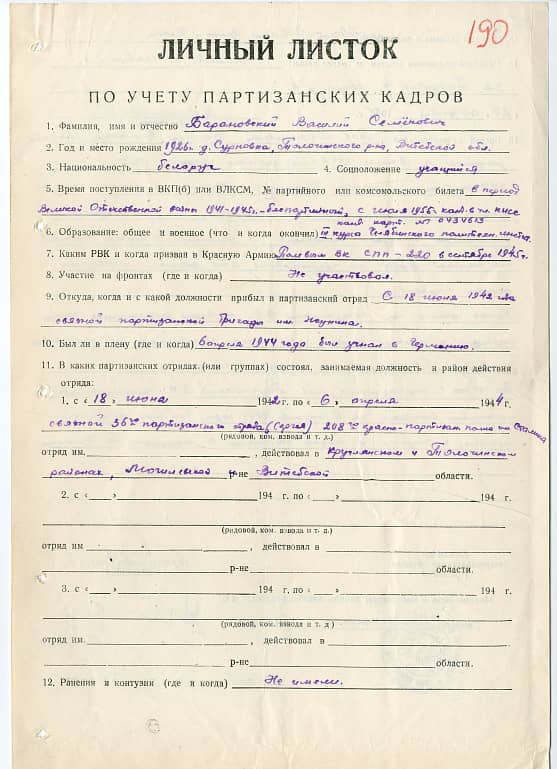 190
ЛИЧНЫЙ ЛИСТОК
ПО УЧЕТУ ПАРТИЗАНСКИХ КАДРОВ
1. Фамилия, имя и отчество Барановский Василий Семёнович
2. Год и место рождения 1926 г. д. Сурновка, Толочинского р-на, Витебской обл.
3. Национальность белорус 4. Соцположение учащийся
5. Время поступления в ВКП(б) или ВЛКСМ, № партийного или комсомольского билета в период
Великой Отечественной войны 1941-1945г. - беспартийный, с июля 1956 г. канд. в чл. КПСС
канд. карт. № 0434613
6. Образование: общее и военное (что и когда окончил) III курса Челябинского политехн. инст.
7. Каким РВК и когда призван в Красную Армию Полевым вк СПП-220 в сентябре 1945г.
8. Участие на фронтах (где и когда) Не участвовал.
9. Откуда, когда и с какой должности прибыл в партизанский отряд С 18 июня 1942
связной партизанской бригады им.
10. Был ли в плену (где и когда) 6 апреля 1944 года был угнан в Германию.
11. В каких партизанских отрядах (или группах) состоял, занимаемая должность и район действия
отряда:
1. с «18» июня 1942 г. по «6» апреля 1944 г.
связной 36го партизанского отряда (Сергея) 208го партизан полка им Сталина
(рядовой, ком. взвода и т. д.)
отряд им. , действовал в Круглянском и Толочинском
районах, Могилевской и р-не Витебской области.
2. с « » 194 г. по « » 194 г.
(рядовой, ком. взвода и т. д.)
отряд им , действовал в
р-не области.
3. с « » 194 г. по « » 194 г.
(рядовой, ком. взвода и т. д )
отряд им. , действовал в
р-не области.
12. Ранения и контузии (где и когда) Не имели.